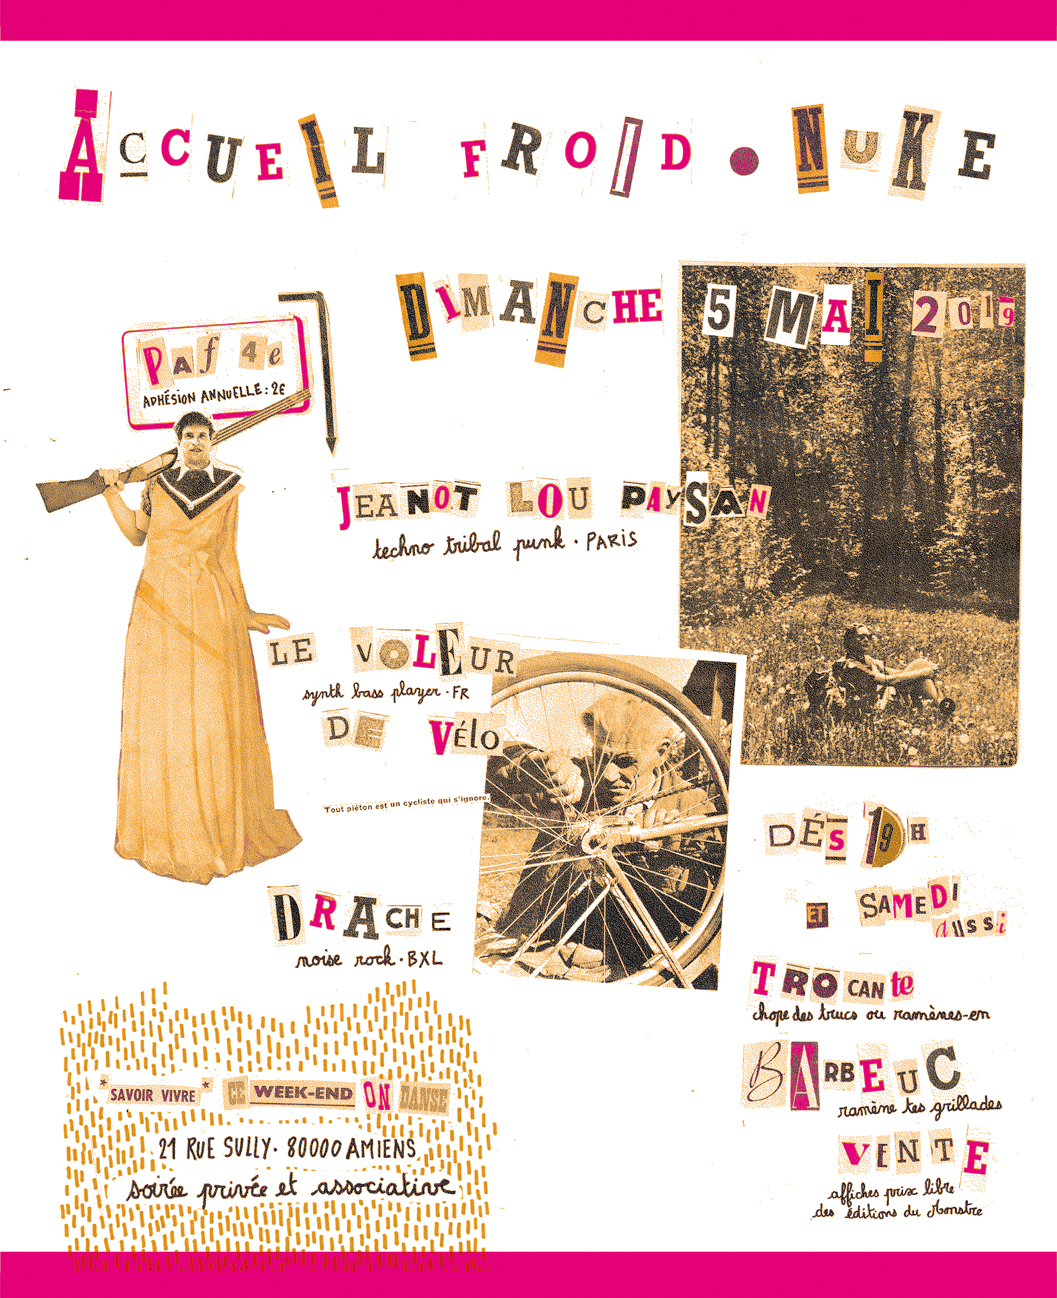 ACCUEIL FROID • NUKE
DIMANCHE 5 MAI 2019
PAf 4e
ADHÉSION ANNUELLE : 2€
JEANOT LOU PAySAN
techno tribal punk · PARIS
LE VOLEUR
synth bass player · FR
DE Vélo
Tout piéton est un cycliste qui s'ignore.
DRACHE
noise rock · BXL
DÉS 19H
ET SAMEDI
aussi
TROCANte
chope des trucs ou ramènes-en
BARBEUC
ramène tes grillades
VENTE
affiches prix libre
des éditions du Monstre
*SAVOIR VIVRE* CE WEEK-END ON DANSE
21 RUE SULLY · 80000 AMIENS
soirée privée et associative